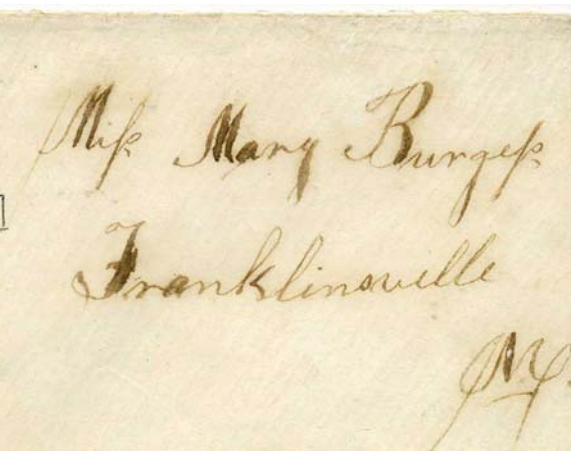 Miſs Mary Burgeſs
Franklinsville